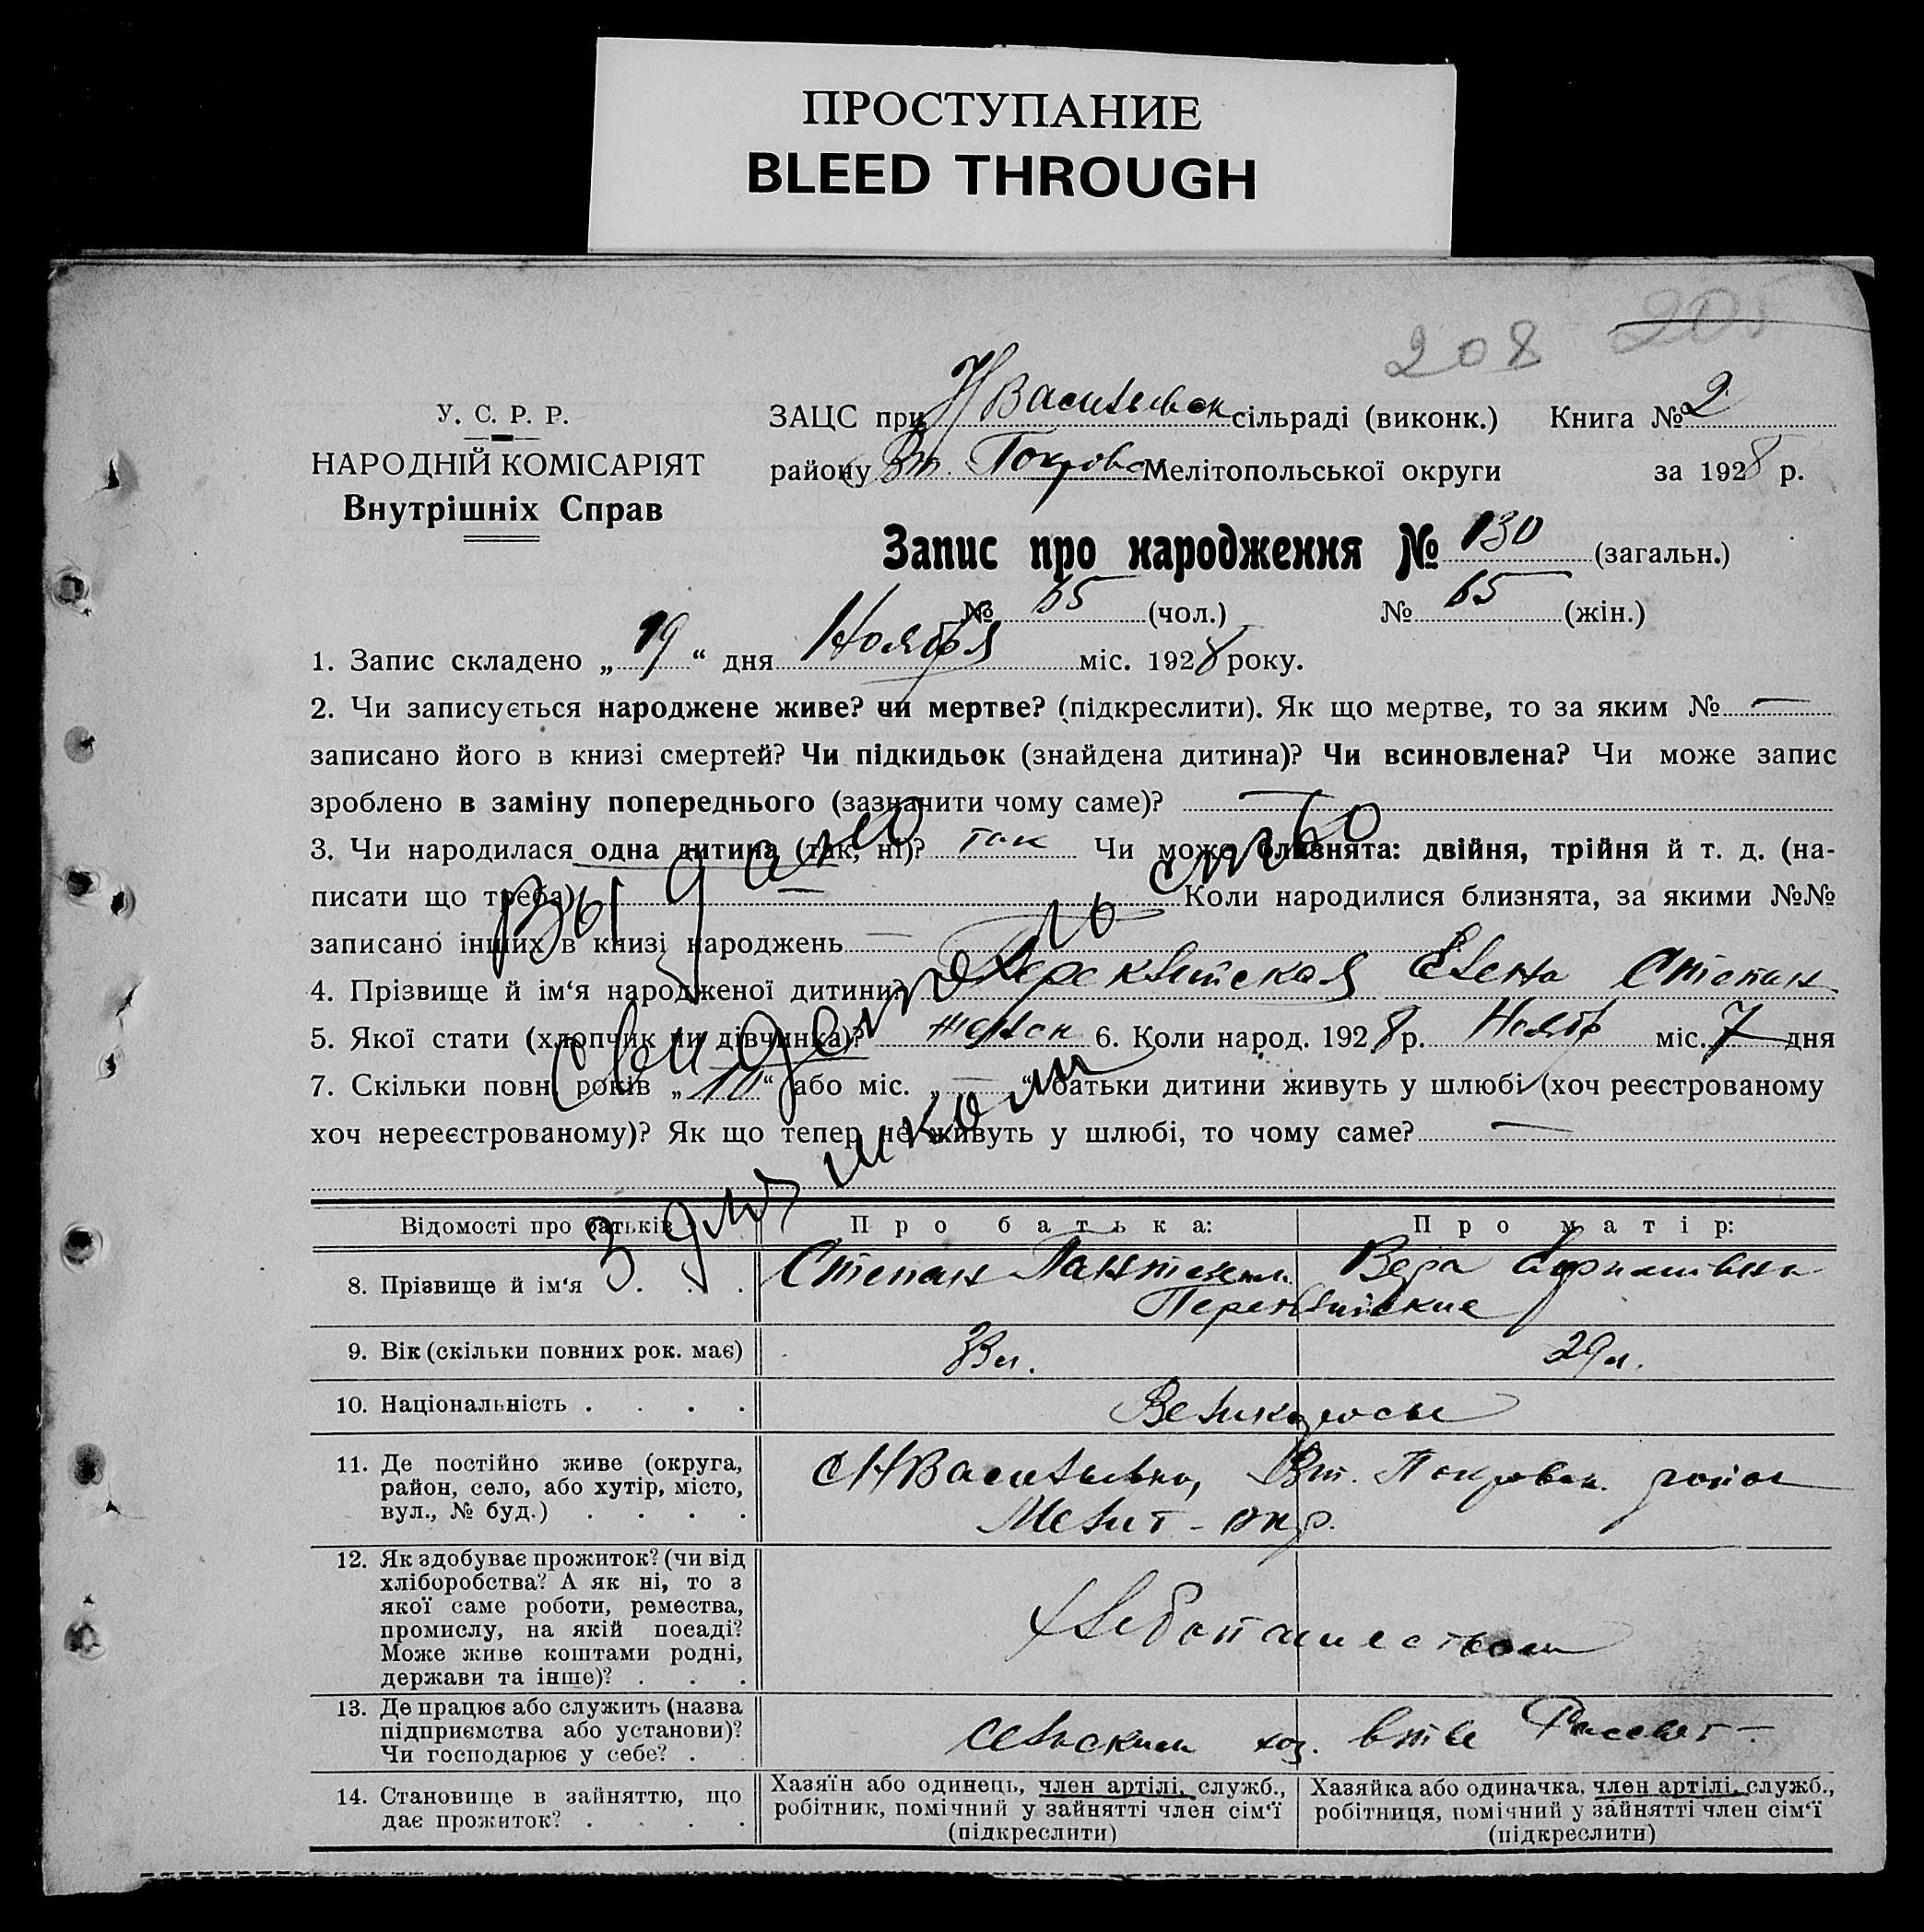 ПРОСТУПАНИЕ
BLEED THROUGH
208 205
У. С. Р. Р.
НАРОДНІЙ КОМІСАРІЯТ
Внутрішніх Справ
ЗАЦС при Н Васильевск сільраді (виконк.) Книга № 2
району Вт. Покров Мелітопольської округи за 1928 р.
Запис про народження № 130 (загальн.)
№ 65 (чол.) № 65 (жін.)
1. Запис складено „ 19 “ дня Ноября міс. 1928 року.
2. Чи записується народжене живе? чи мертве? (підкреслити). Як що мертве, то за яким № —
записано його в книзі смертей? Чи підкидьок (знайдена дитина)? Чи всиновлена? Чи може запис
зроблено в заміну попереднього (зазначити чому саме)? —
3. Чи народилася одна дитина (так, ні)? так Чи може близнята: двійня, трійня й т. д. (на-
писати що треба) — Коли народилися близнята, за якими №№
записано інших в книзі народжень —
4. Прізвище й ім‘я народженої дитини? Елена Степан
5. Якої стати (хлопчик чи дівчинка)? 6. Коли народ. 1928 р. Нояб міс. 7 дня
7. Скільки повн. років „ 10 “ або міс. „ — “ батьки дитини живуть у шлюбі (хоч реєстрованому
хоч нереєстрованому)? Як що тепер не живуть у шлюбі, то чому саме? —
Выдано
свидетельство
Відомості про батьків Про батька: Про матір:
8. Прізвище й ім‘я . . . Степан Вера
9. Вік (скільки повних рок. має) 33 л. 29 л.
10. Національність . . . . Великороссы
11. Де постійно живе (округа,
район, село, або хутір, місто,
вул., № буд.) . . . .
С Н Васильевка, Вт. Покровск. район
Мелит - окр.
12. Як здобуває прожиток? (чи від
хліборобства? А як ні, то з
якої саме роботи, ремества,
промислу, на якій посаді?
Може живе коштами родні,
держави та інше)? . . .
хлебопашеством
13. Де працює або служить (назва
підприємства або установи)?
Чи господарює у себе? . .
сельским хоз. в тве Рассвет -
14. Становище в зайняттю, що
дає прожиток? . . . .
Хазяїн або одинець, член артілі, служб.,
робітник, помічний у зайнятті член сім‘ї
(підкреслити)
Хазяйка або одиначка, член артілі, служб.,
робітниця, помічний у зайнятті член сім‘ї
(підкреслити)